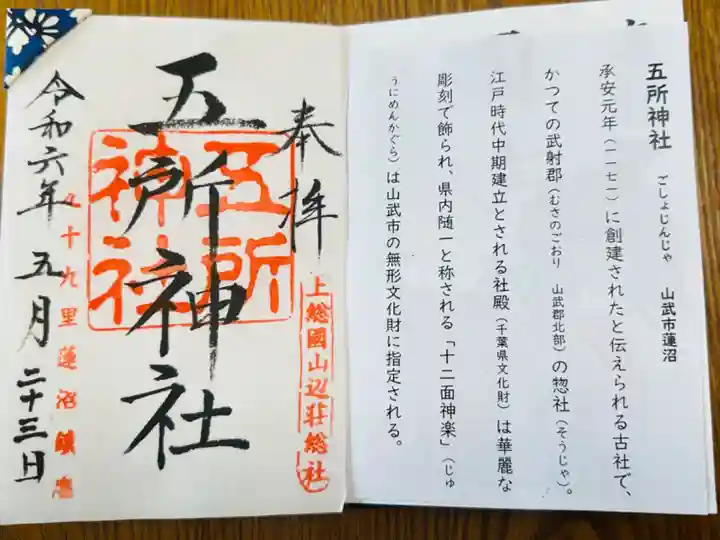 五所神社　ごしょじんじゃ　山武市蓮沼
承安元年（一一七一）に創建されたと伝えられる古社で、
かつての武射郡（むさのごおり　山武郡北部）の惣社（そうじゃ）。
江戸時代中期建立とされる社殿（千葉県文化財）は華麗な
彫刻で飾られ、県内随一と称される「十二面神楽」（じゅ
うにめんかぐら）は山武市の無形文化財に指定される。
奉拝
上総國山辺荘総社
五所神社
五所神社
九十九里蓮沼鎮座
令和六年五月二十三日